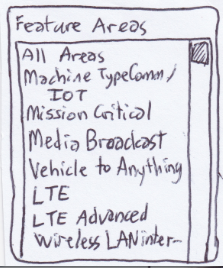 Feature Areas
All Areas
Machine TypeComm/
IOT
Mission Critical
Media Broadcast
Vehicle to Anything
LTE
LTE Advanced
Wireless LAN inter-